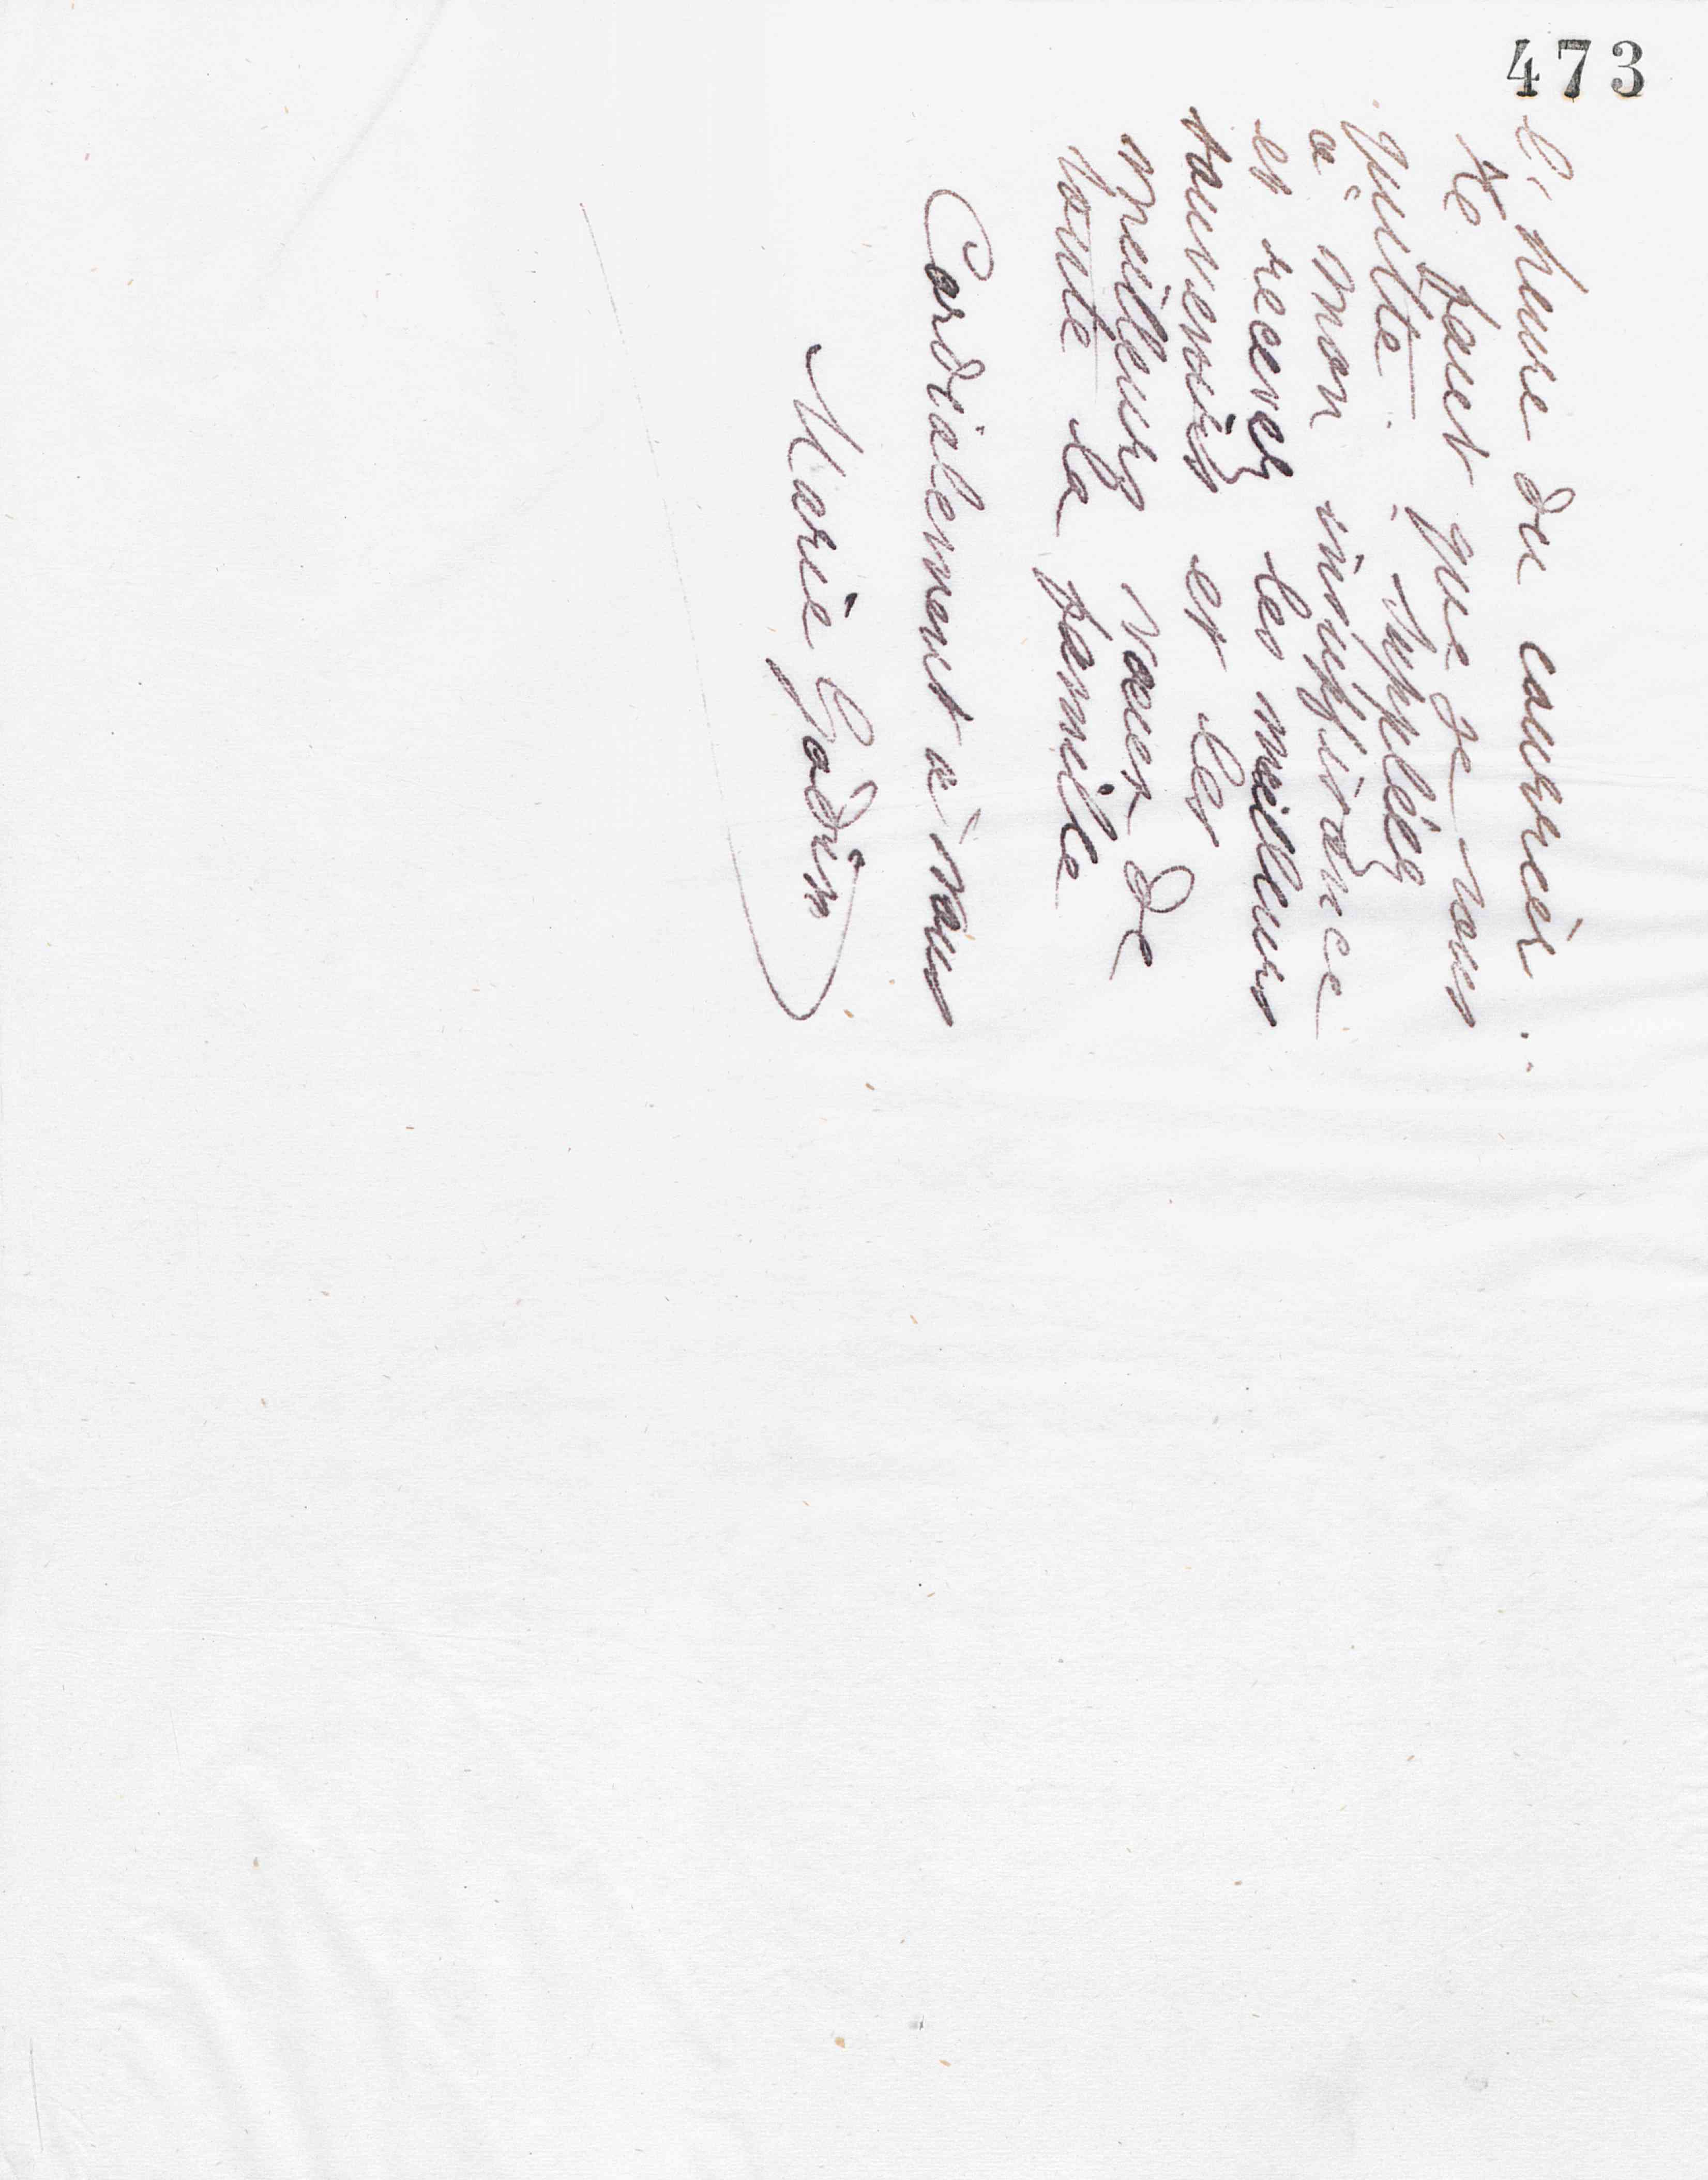 473
l'heure du courrier..
Il faut que je vous
quitte. Suppléez
à mon insuffisance
et recevez les meilleurs
souvenirs et les
meilleurs vœux de
toute la famille
Cordialement à vous
Marie Godin